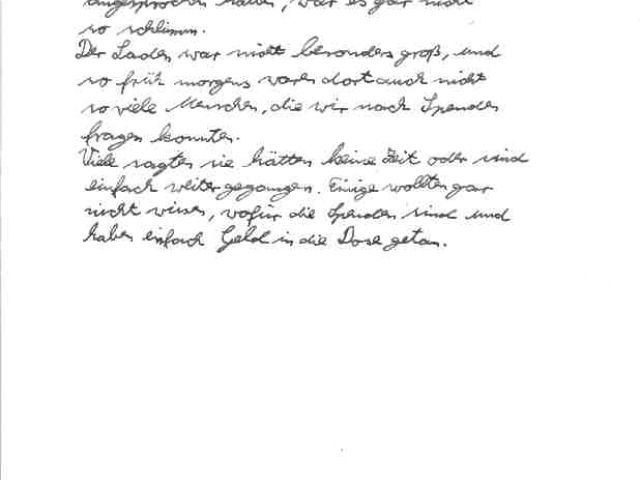 angesprochen haben, war es gar nicht
so schlimm.
Der Laden war nicht besonders groß, und
so früh morgens waren dort auch nicht
so viele Menschen, die wir nach Spenden
fragen konnten.
Viele sagten sie hätten keine Zeit oder sind
einfach weitergegangen. Einige wollten gar
nicht wissen, wofür die Spenden sind und
haben einfach Geld in die Dose getan.